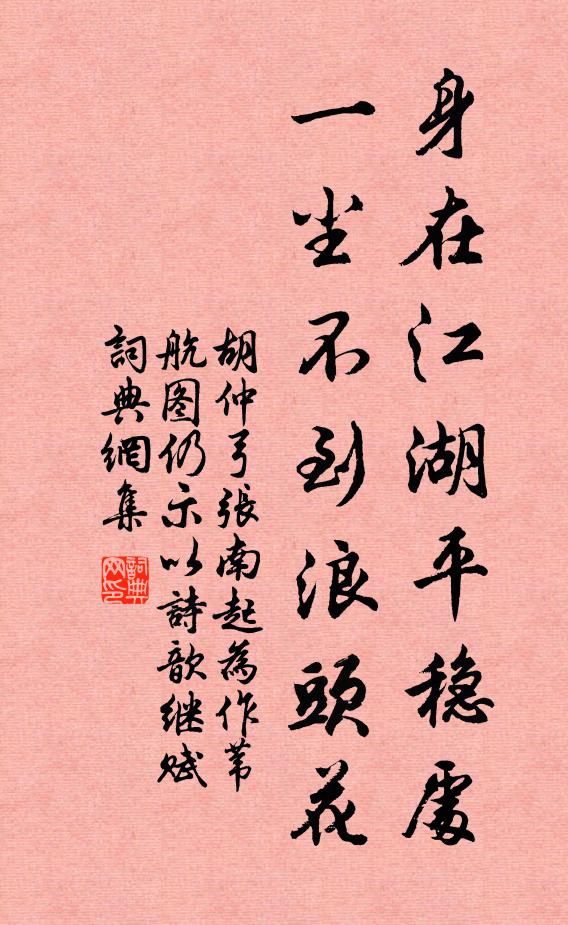 身在江湖平稳處
一尘不到浪頭花
胡仲弓張南起為作苇
航图仍示以詩歌继赋
詞典網集
詞典
网印